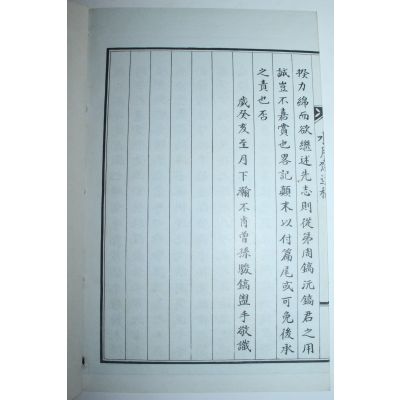 揆力綿而欲繼述先志則從弟周鎬沅鎬君之用
誠豈不嘉賞也畧記顚末以付篇尾或可免後承
之責也否
歲癸亥至月下瀚不肖曾孫駿鎬盥手敬識